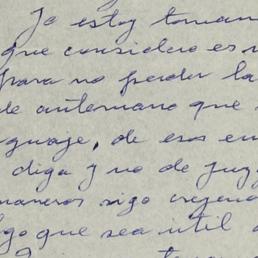 Yo estoy toman
que considero es n
para no perder la
de antemano que
guaje, de esos en
diga y no de juz
maneras sigo creyend
lgo que sea útil a